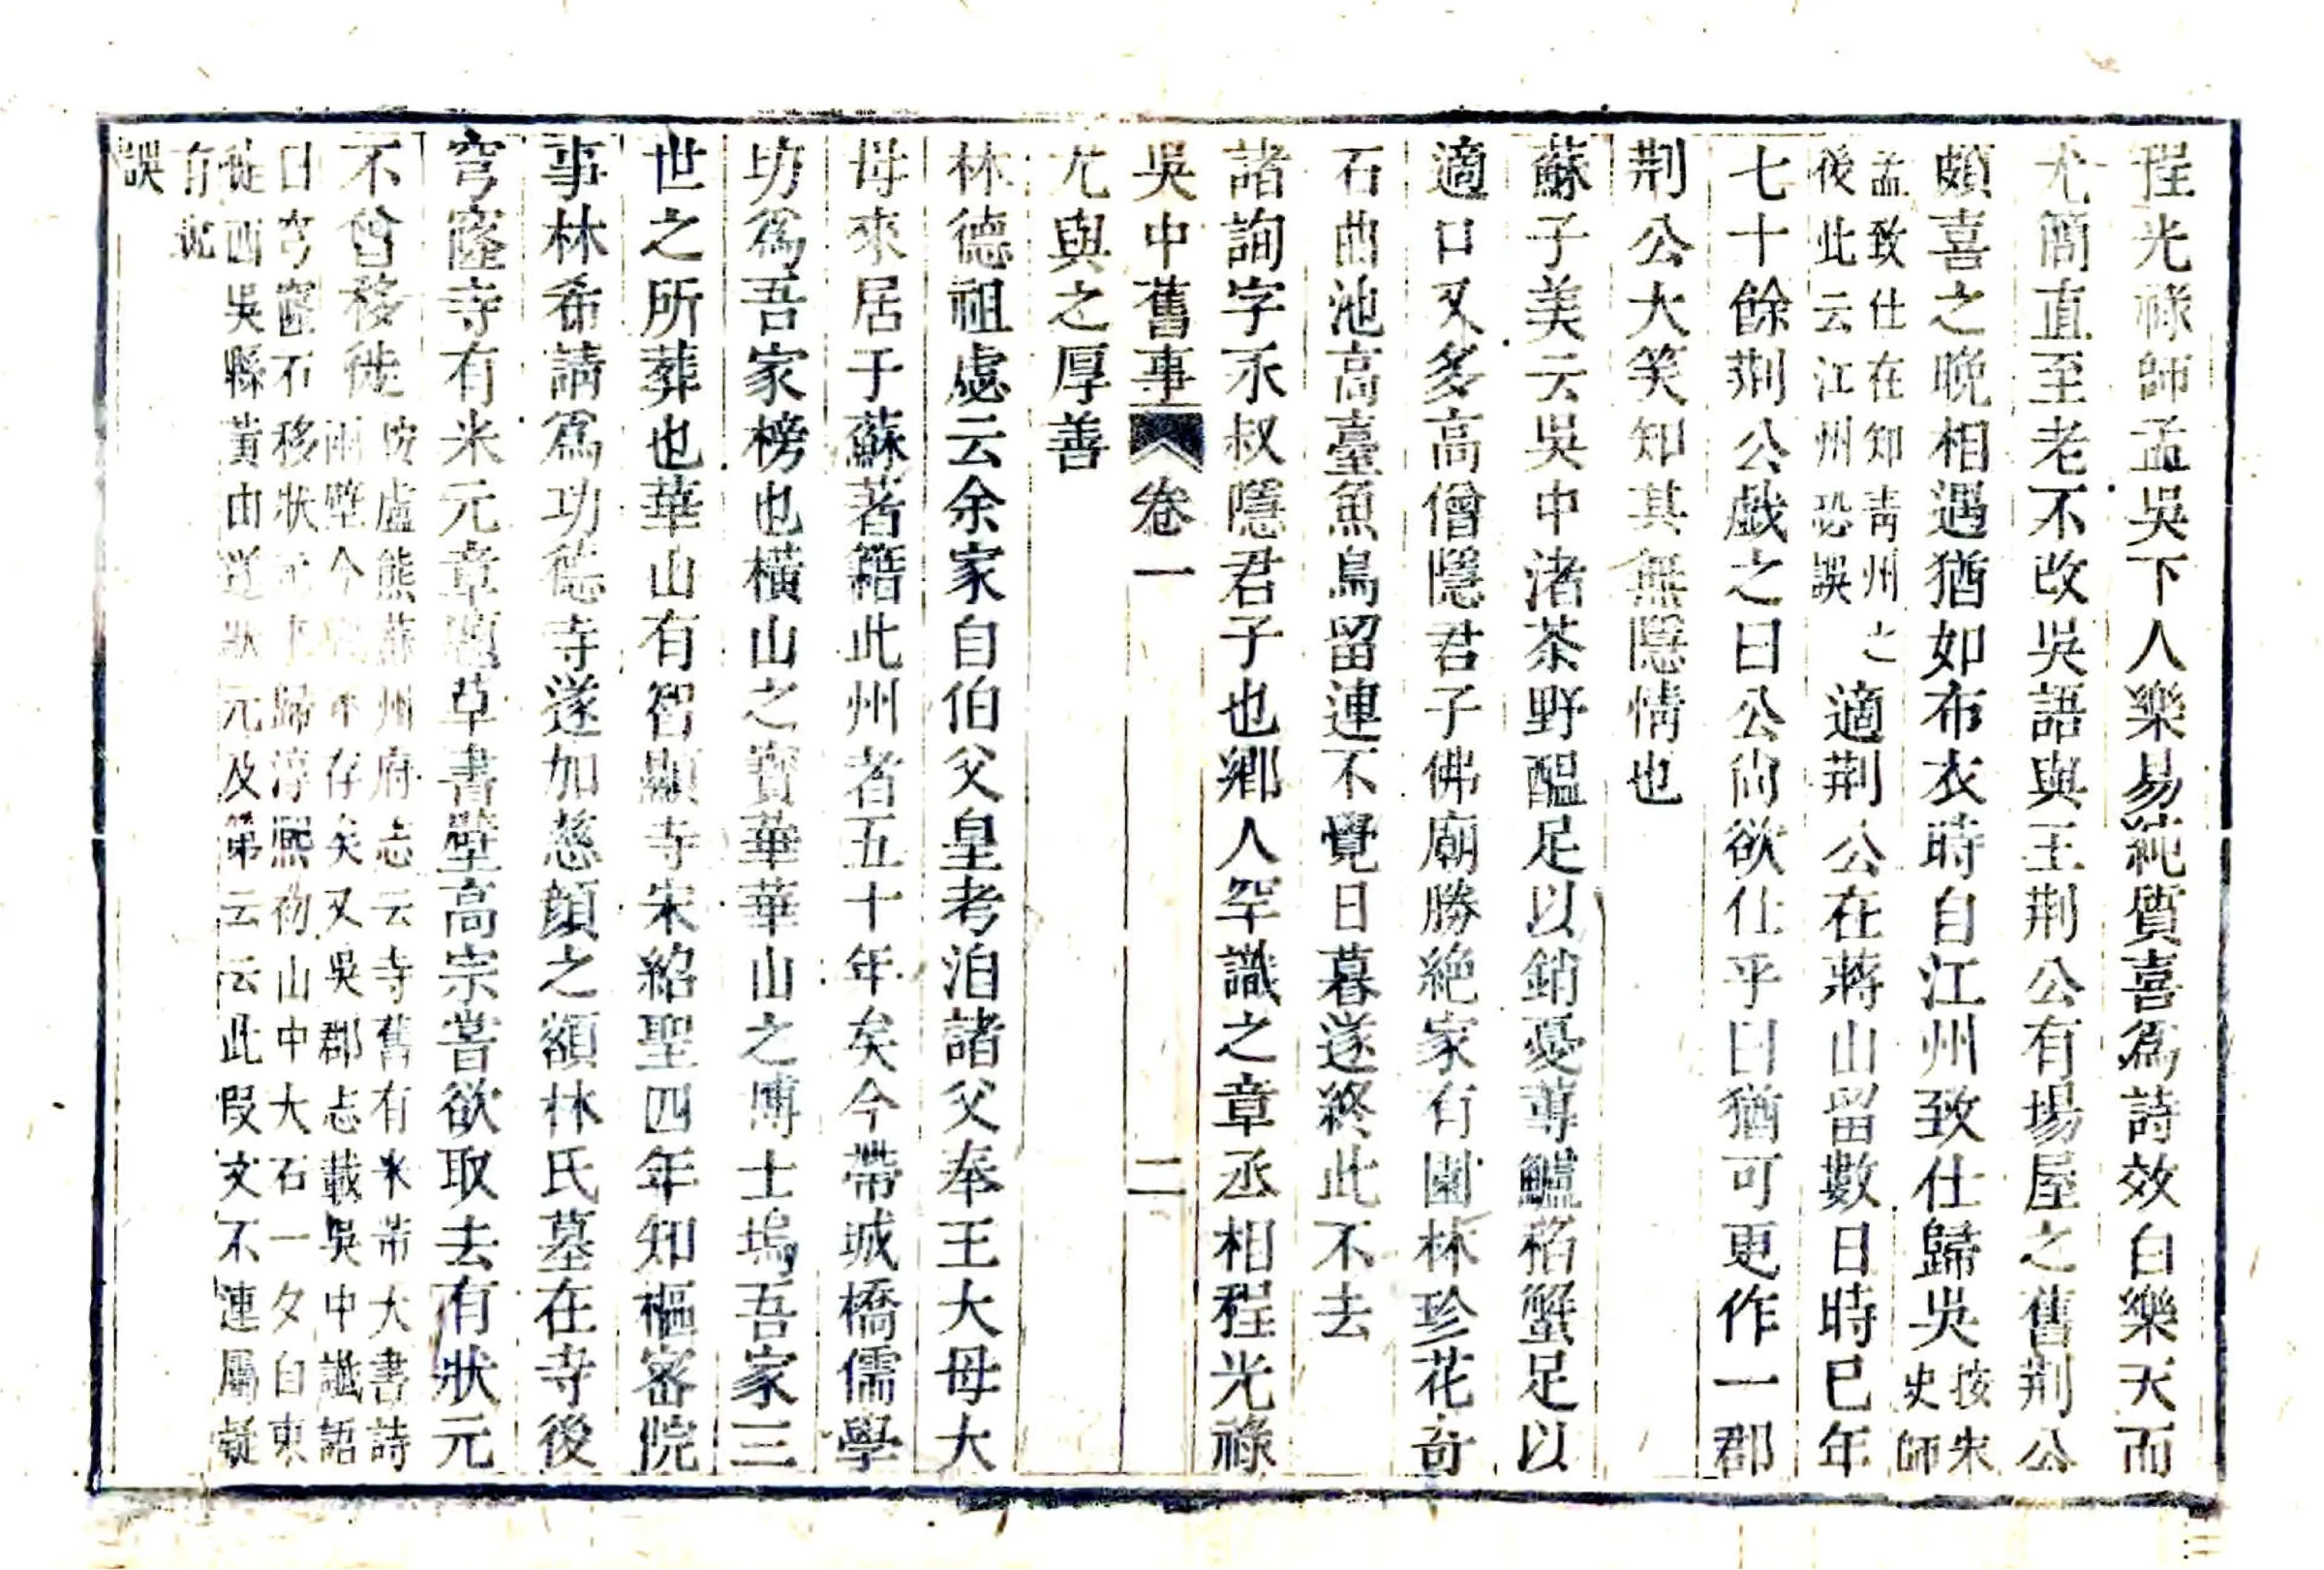 程光祿師孟吳下人樂易純質喜爲詩效白樂天而
尤簡直至老不改吳語與王荆公有場屋之舊荆公
頗喜之晩相遇猶如布衣時自江州致仕歸吳按宋
史師
孟致仕在知靑州之
後此云江州恐誤
適荆公在蔣山留數日時已年
七十餘荆公戲之曰公尙欲仕乎曰猶可更作一郡
荆公大笑知其無隱情也
蘇子美云吳中渚茶野醞足以銷憂蓴鱸稻蟹足以
適口又多高僧隱君子佛廟勝絶家有園林珍花奇
石曲池高臺魚鳥留連不覺日暮遂終此不去
諸詢字永叔隱君子也鄉人罕識之章丞相程光祿
吳中舊事 卷一 二
尤與之厚善
林德祖虙云余家自伯父皇考洎諸父奉王大母大
母來居于蘇著籍此州者五十年矣今帶城橋儒學
坊爲吾家榜也橫山之寳華華山之博士塢吾家三
世之所葬也華山有智顯寺宋紹聖四年知樞密院
事林希請爲功德寺遂加慈顔之額林氏墓在寺後
穹窿寺有米元章題草書壁高宗嘗欲取去有狀元
不曾移徙
按盧熊蘇州府志云寺舊有米芾大書詩
兩壁今不存矣又吳郡志載吳中讖語
曰穹窿石移狀元來歸淳熙初山中大石一夕自東
徙西吳縣黃由遂狀元及第云云此叚文不連屬疑
有訛
誤